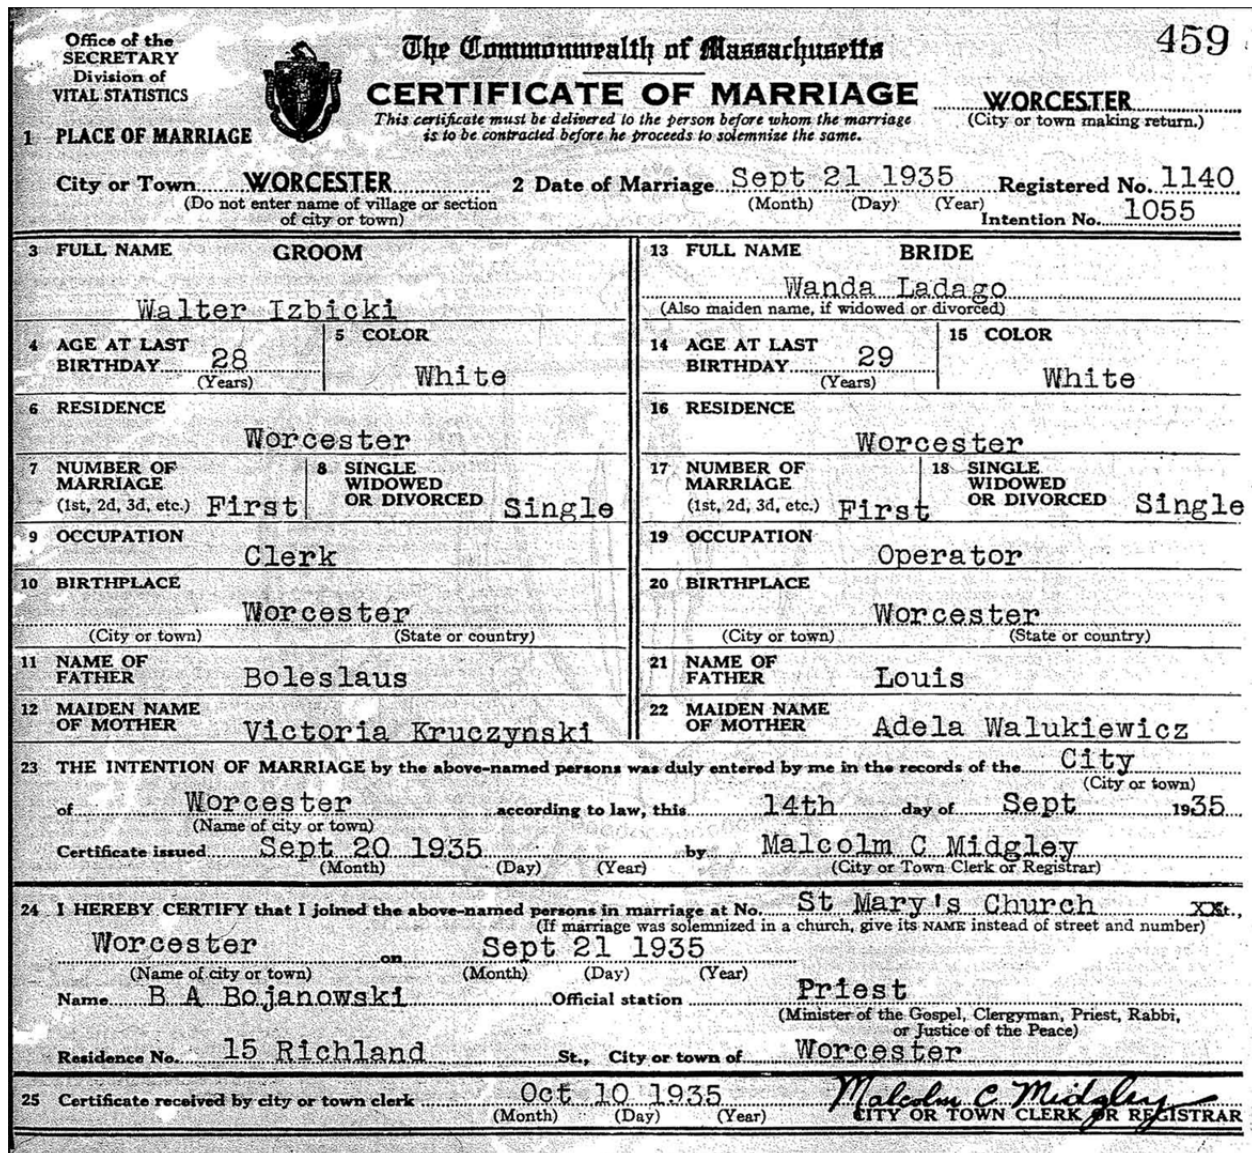 459
Office of the
SECRETARY
Division of
VITAL STATISTICS
The Commonwealth of Massachusetts
CERTIFICATE OF MARRIAGE
This certificate must be delivered to the person before whom the marriage
is to be contracted before he proceeds to solemnize the same.
WORCESTER
(City or town making return.)
1 PLACE OF MARRIAGE
City or Town WORCESTER 2 Date of Marriage Sept 21 1935 Registered No. 1140
(Do not enter name of village or section (Month) (Day) (Year)
of city or town) Intention No. 1055
3 FULL NAME GROOM
Walter Izbicki
4 AGE AT LAST
BIRTHDAY 28
(Years)
5 COLOR
White
6 RESIDENCE
Worcester
7 NUMBER OF
MARRIAGE
(1st, 2d, 3d, etc.) First
8 SINGLE
WIDOWED
OR DIVORCED Single
9 OCCUPATION
Clerk
10 BIRTHPLACE
Worcester
(City or town) (State or country)
11 NAME OF
FATHER Boleslaus
12 MAIDEN NAME
OF MOTHER Victoria Kruczynski
13 FULL NAME BRIDE
Wanda Ladago
(Also maiden name, if widowed or divorced)
14 AGE AT LAST
BIRTHDAY 29
(Years)
15 COLOR
White
16 RESIDENCE
Worcester
17 NUMBER OF
MARRIAGE
(1st, 2d, 3d, etc.) First
18 SINGLE
WIDOWED
OR DIVORCED Single
19 OCCUPATION
Operator
20 BIRTHPLACE
Worcester
(City or town) (State or country)
21 NAME OF
FATHER Louis
22 MAIDEN NAME
OF MOTHER Adela Walukiewicz
23 THE INTENTION OF MARRIAGE by the above-named persons was duly entered by me in the records of the City
(City or town)
of Worcester according to law, this 14th day of Sept 1935
(Name of city or town)
Certificate issued Sept 20 1935 by Malcolm C Midgley
(Month) (Day) (Year) (City or Town Clerk or Registrar)
24 I HEREBY CERTIFY that I joined the above-named persons in marriage at No. St Mary's Church XXt.,
(If marriage was solemnized in a church, give its NAME instead of street and number)
Worcester on Sept 21 1935
(Name of city or town) (Month) (Day) (Year)
Name B A Bojanowski Official station Priest
(Minister of the Gospel, Clergyman, Priest, Rabbi,
or Justice of the Peace)
Residence No. 15 Richland St., City or town of Worcester
25 Certificate received by city or town clerk Oct 10 1935 Malcolm C. Midgley
(Month) (Day) (Year) CITY OR TOWN CLERK OR REGISTRAR